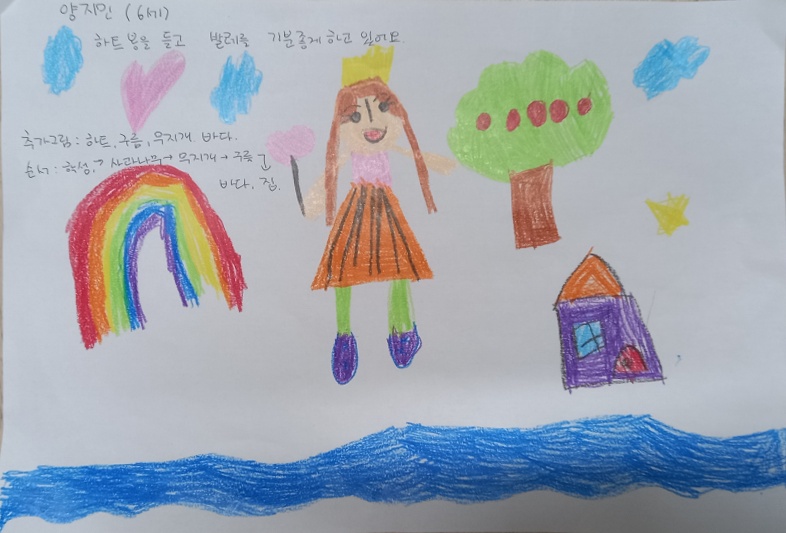 양지민 (6세)
하트봉을 들고 발레를 기분좋게 하고 있어요.
추가그림 : 하트, 구름, 무지개, 바다.
순서 : 학성, → 사과나무 → 무지개 → 구름 →
바다, 집.